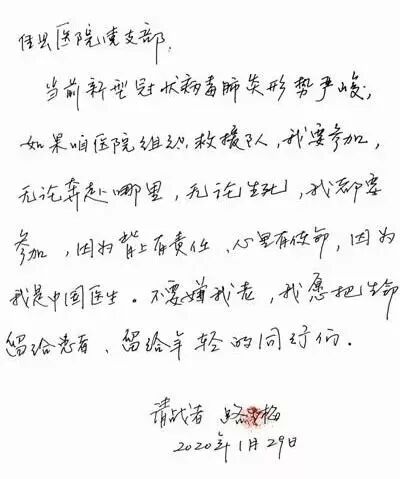 佳县医院党支部,
当前新型冠状病毒肺炎形势严峻,
如果咱医院组织救援队,我要参加,
无论奔赴哪里,无论生死,我都要
参加,因为背上有责任,心里有使命,因为
我是中国医生。不要嫌我老,我愿把生命
留给患者、留给年轻的同行们。
请战者 路
2020年1月29日